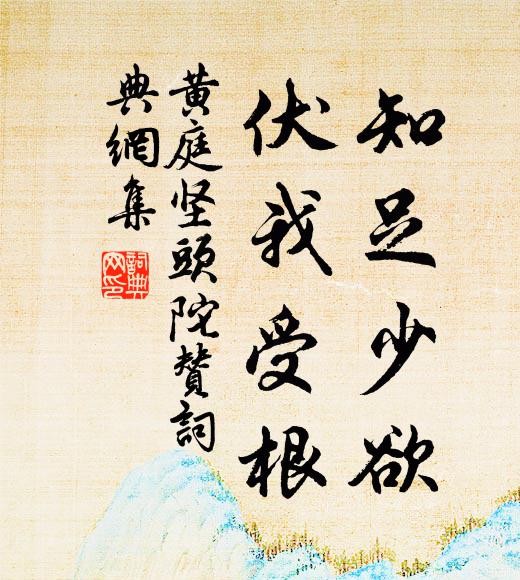 知足少欲
伏我受根
黄庭坚頭陀賛詞
典網集
詞典
网印